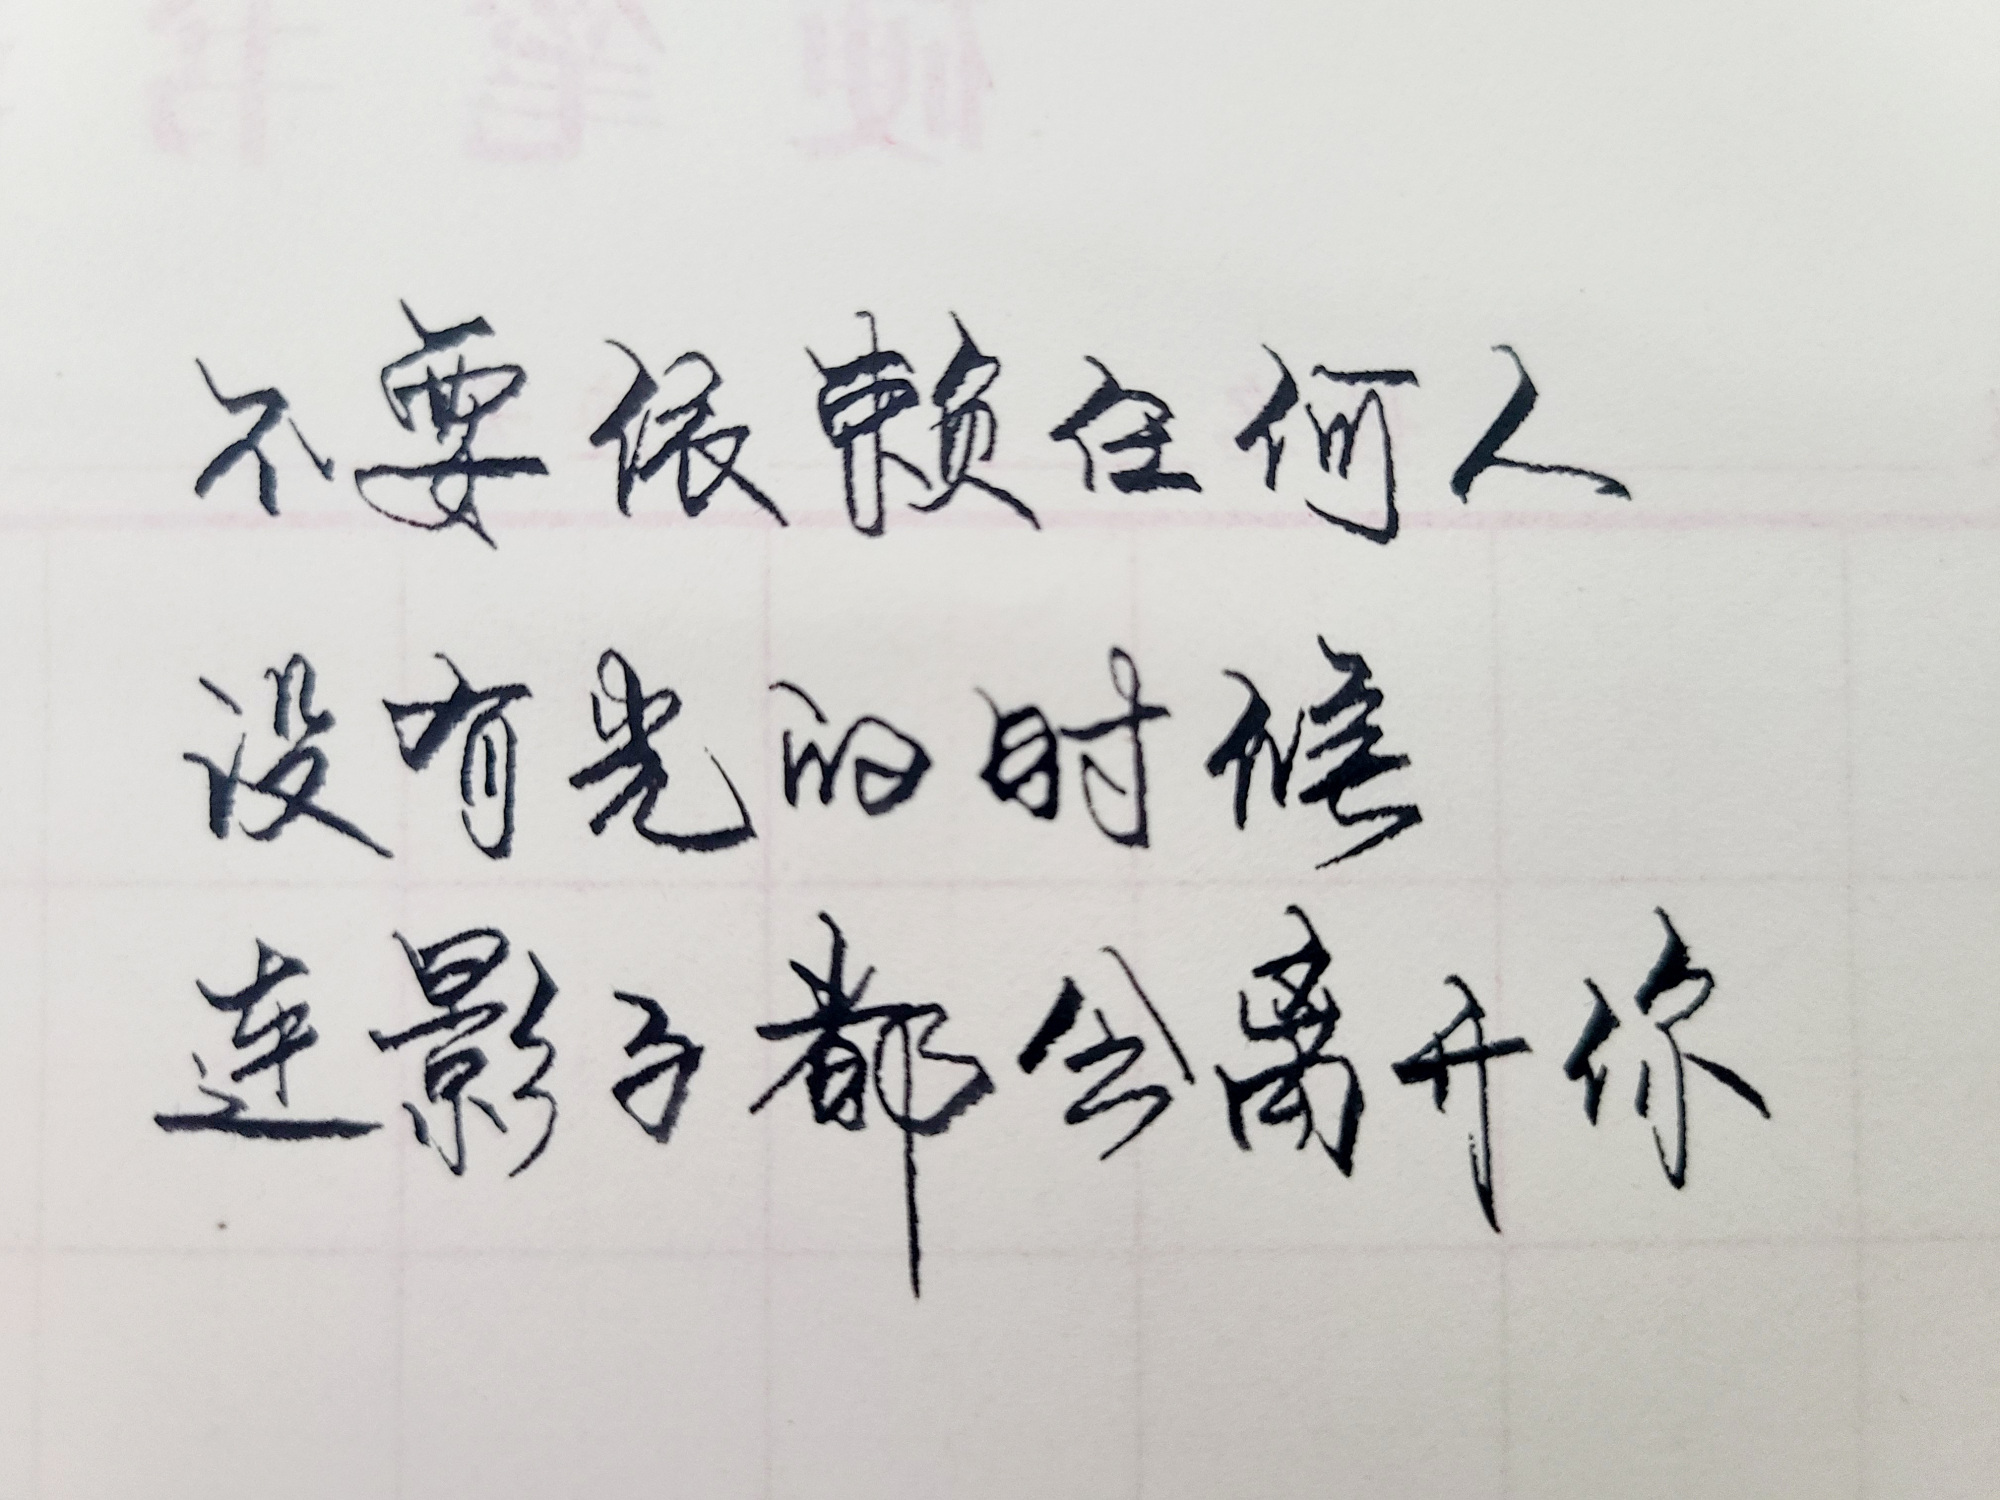 不要依赖任何人
没有光的时候
连影子都会离开你